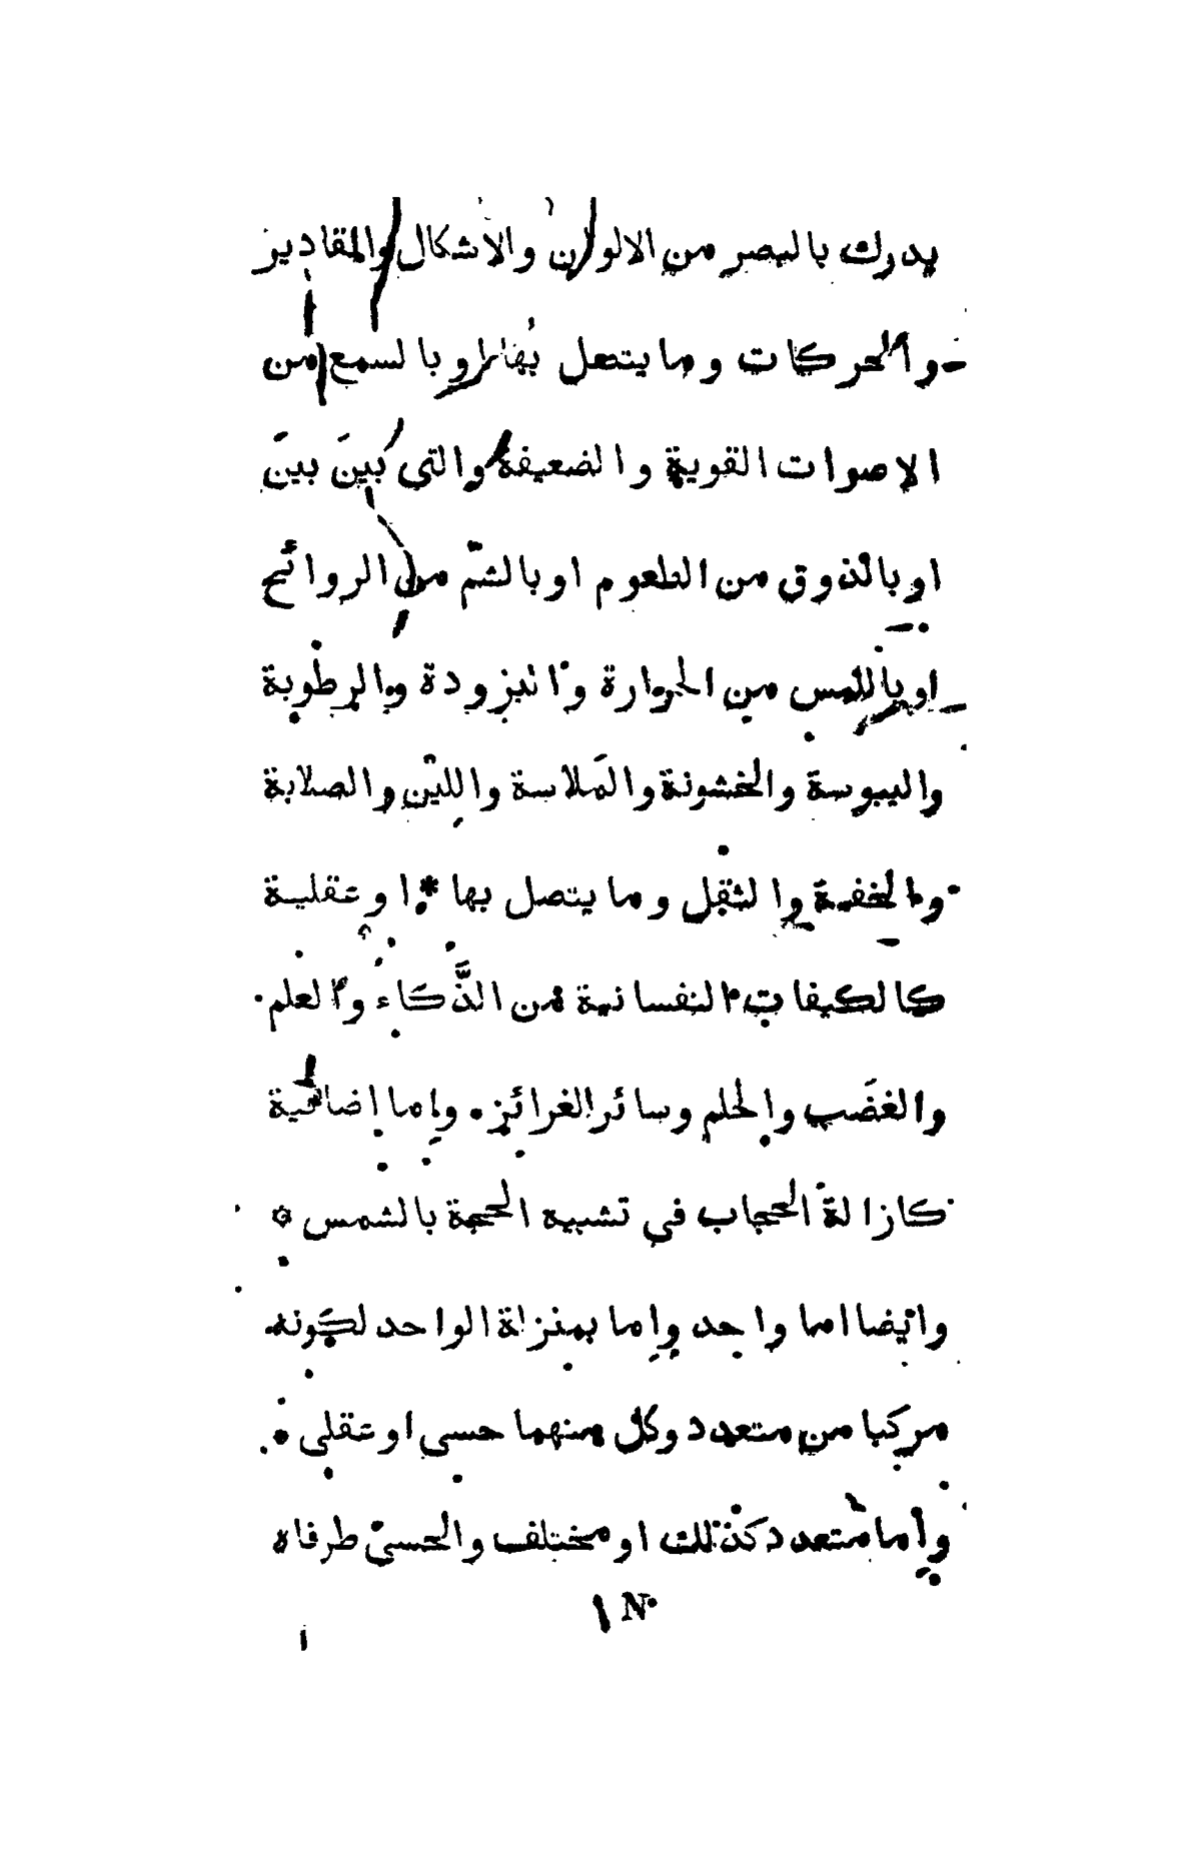 يدرك بالبصر من الالوان والاشكال والمقادير
والحركات وما يتصل بها او بالسمع من
الاصوات القوية والضعيفة والتي بينَ بينَ
او بالذوق من الطعوم او بالشمّ من الروائح
او باللمس من الحرارة والبرودة والرطوبة
واليبوسة والخشونة والمَلاسة والليّن والصلابة
والخفة والثقل وما يتصل بها * او عقلية
كالكيفات النفسانية من الذَّكاء والعلم
والغضَب والحلم وسائر الغرائز. وإما إضافية
كازالة الحجاب في تشبيه الحجة بالشمس *
وايضا اما واحد وإما بمنزلة الواحد لكونه
مركبا من متعدد وكل منهما حسي او عقلي .
وإما متعدد كذلك او مختلف والحسيّ طرفاه
١ N.